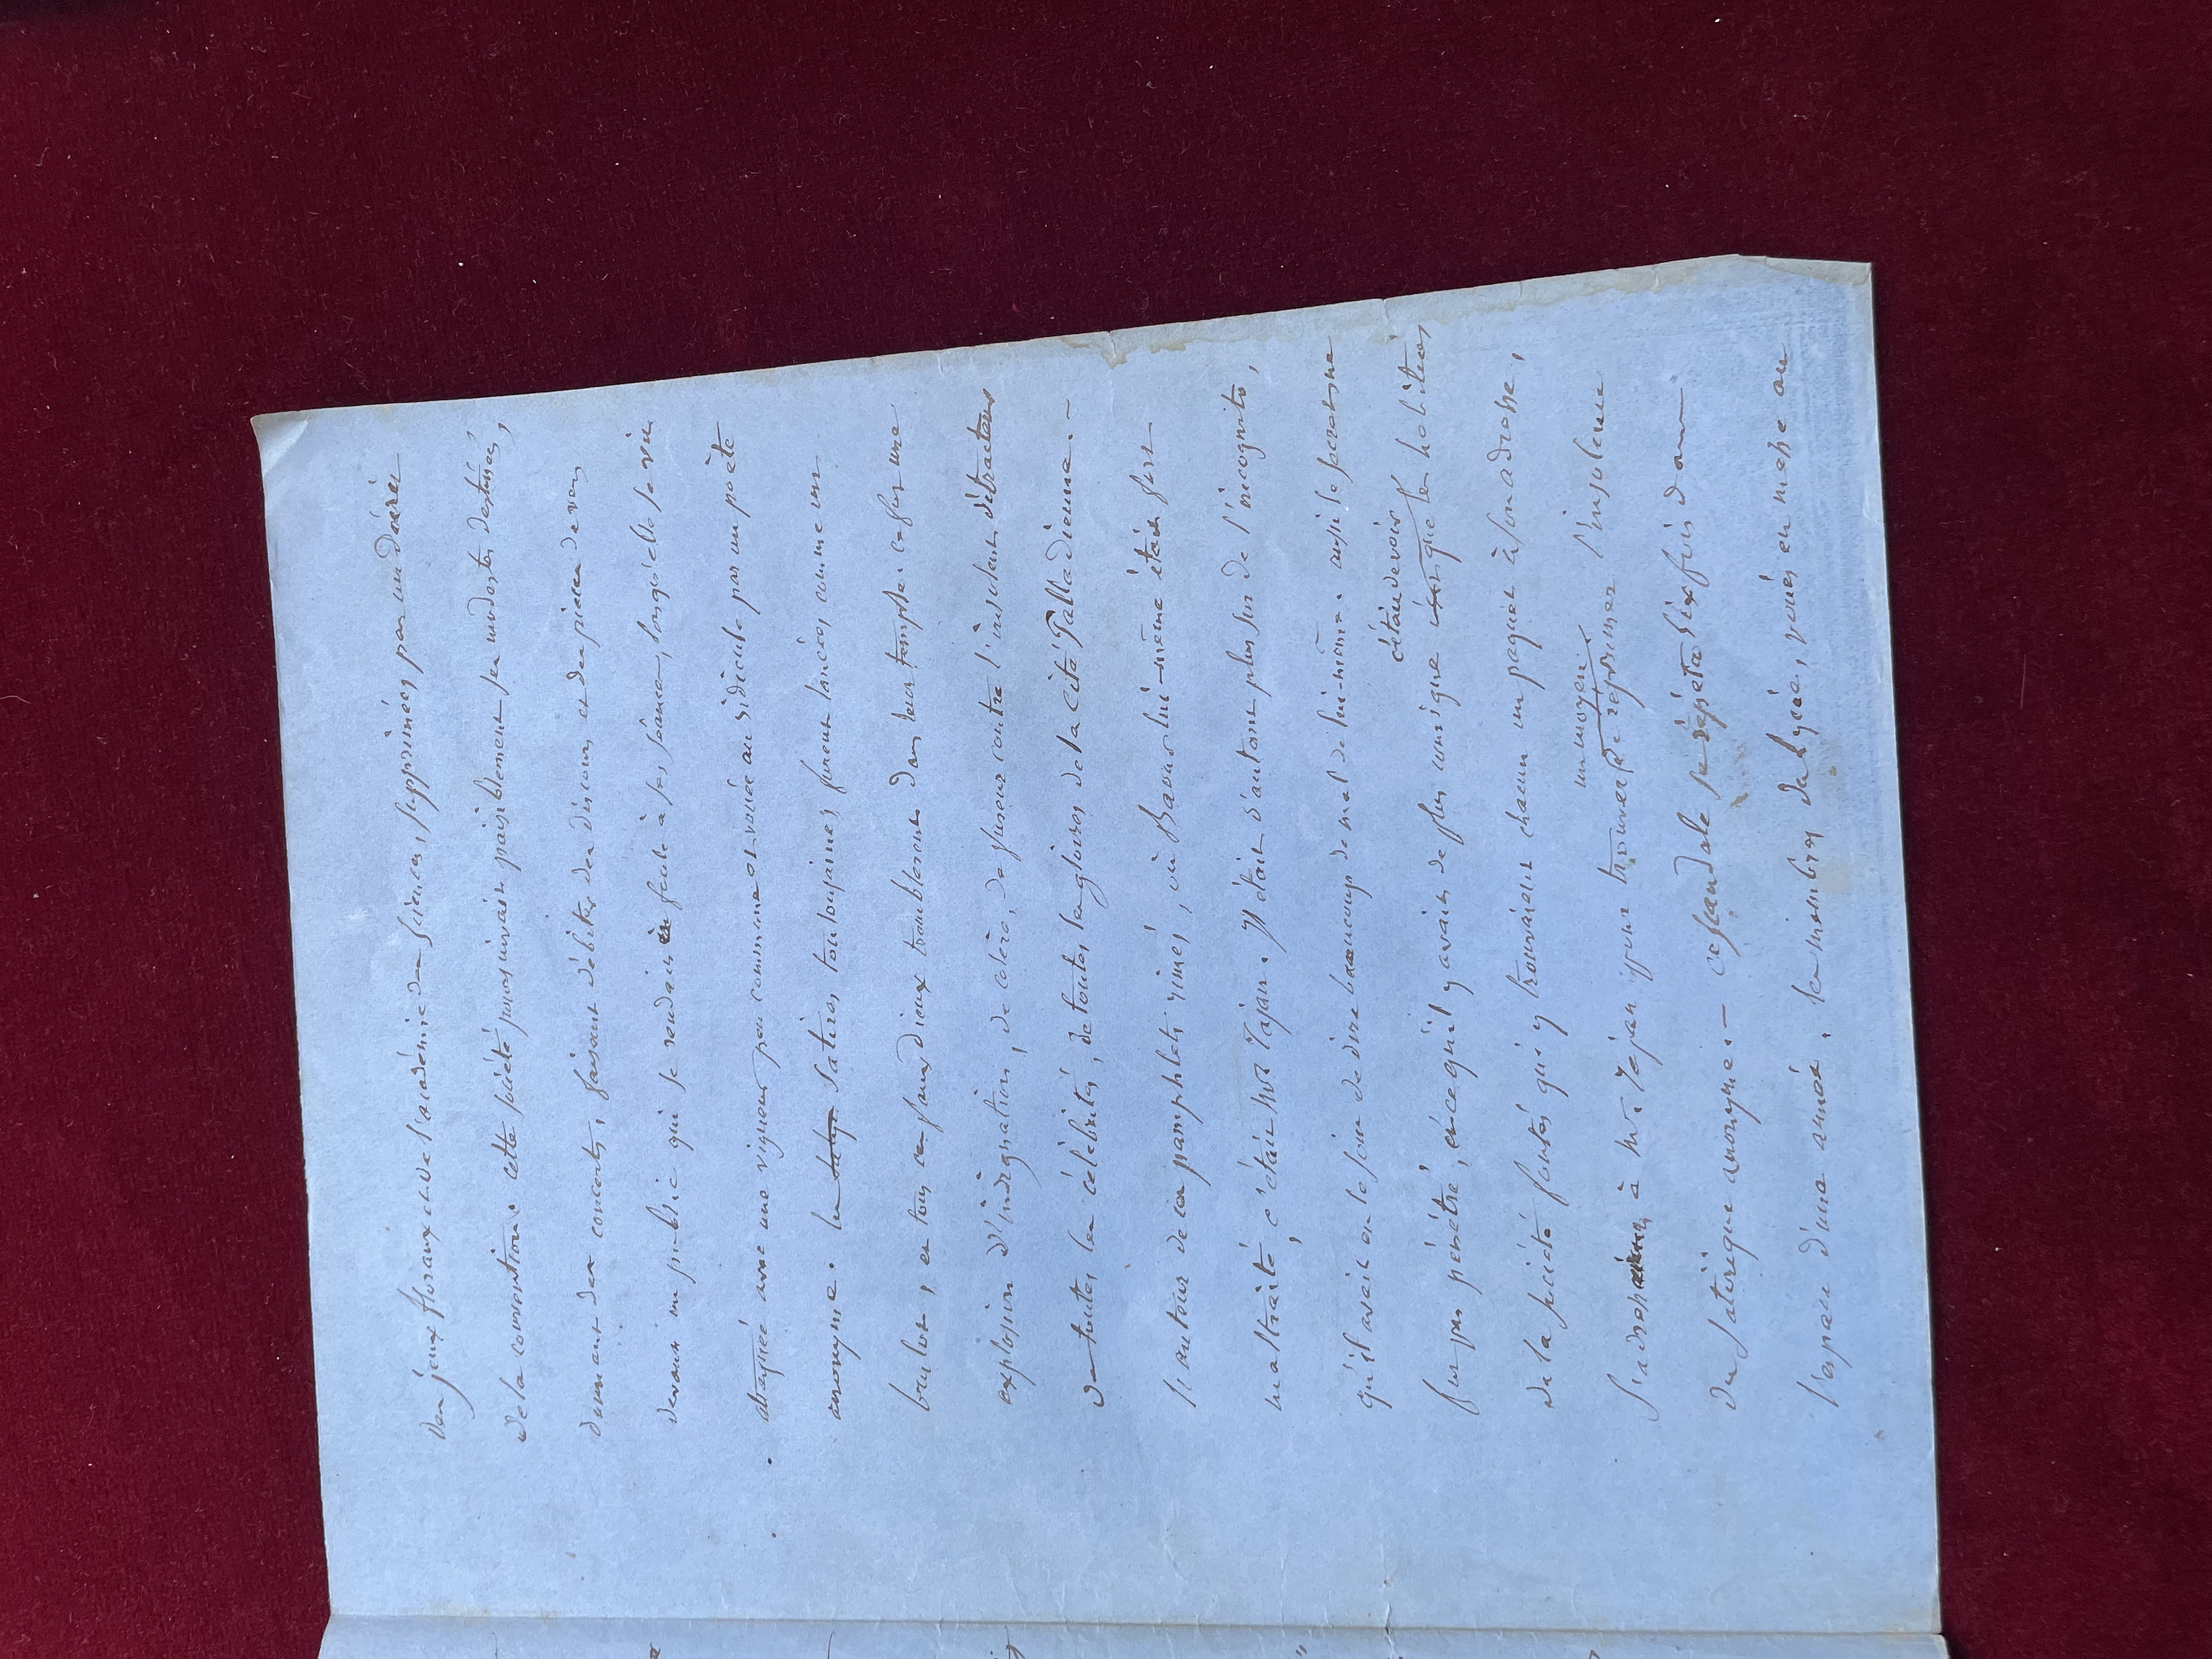 des jeux floraux et de l'académie des sciences, supprimées par un décret
de la convention. cette société poursuivait paisiblement ses modestes destinées,
donnant des concerts, faisant débiter des discours et des pièces de vers
devant un public qui se rendait en foule à ses séances, lorsqu'elle se vit
attaquée avec une vigueur peu commune et vouée au ridicule par un poète
anonyme. les satires toulousaines furent lancées comme un
brulot, et tous ces faux dieux tremblèrent dans leur temple. ce fut une
explosion d'indignation, de colère, de fureur contre l'insolent détracteur
de toutes les célébrités, de toutes les gloires de la cité Palladienne.
l'auteur de ces pamphlets rimés, où Baour lui-même était fort
maltraité, c'était Mr Tajan. Il était d'autant plus sûr de l'incognito,
qu'il avait eu le soin de dire beaucoup de mal de lui-même. aussi le secret ne
fut pas pénétré, et ce qu'il y avait de plus comique
c'était de voir
que les habitués
de la société fêtés qui y trouvaient chacun un paquet à son adresse,
s'adresser à Mr. Tajan pour trouver
un moyen
de réprimer l'insolence
du satirique anonyme. — ce scandale se répéta six fois dans
l'espace d'une année. les membres du lycée, voués en masse au